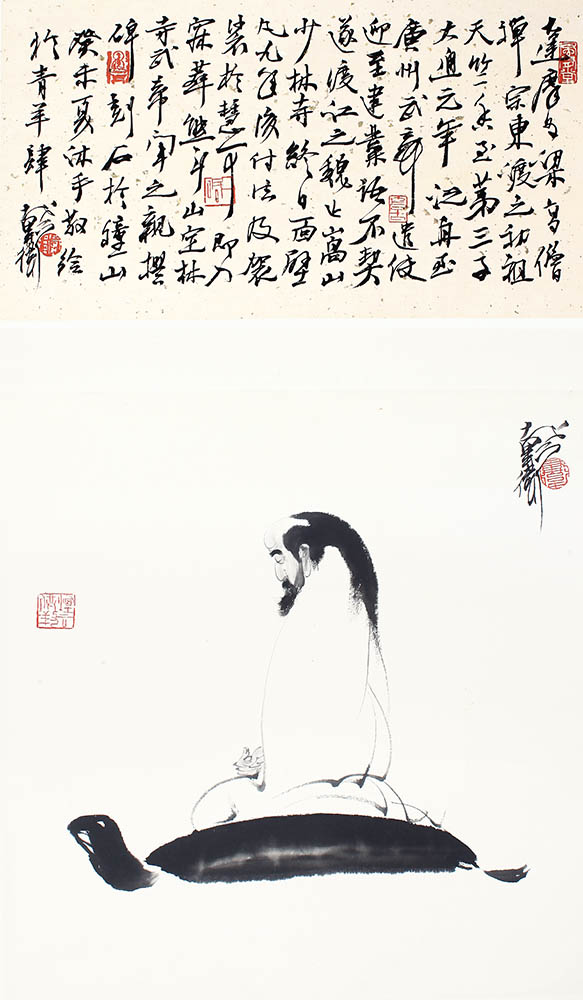 達摩為梁高僧
禪宗東渡之初祖
天竺香至第三子
大通元年泛舟至
廣州武帝遣使
迎至建業話不契
遂渡江之魏止嵩山
少林寺終日面壁
凡九年後付法及袈
裟於慧可即入
寂葬熊耳山定林
寺武帝聞之親撰
碑刻石於鍾山
癸未夏沐手敬繪
於青羊肆